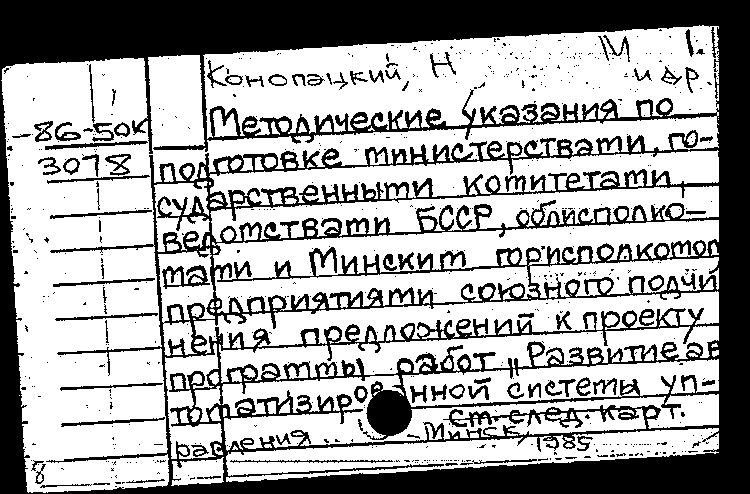 Конопацкий, Н М 1.
и др.
-86-50к Методические указания по
3078 подготовке министерствами, го-
сударственными комитетами,
ведомствами БССР, облисполко-
мами и Минским горисполкомом
предприятиями союзного подчи
нения предложений к проекту
программы работ „Развитие ав
томатизированной системы уп-
равления... ст. след. карт.
- Минск, 1985
8